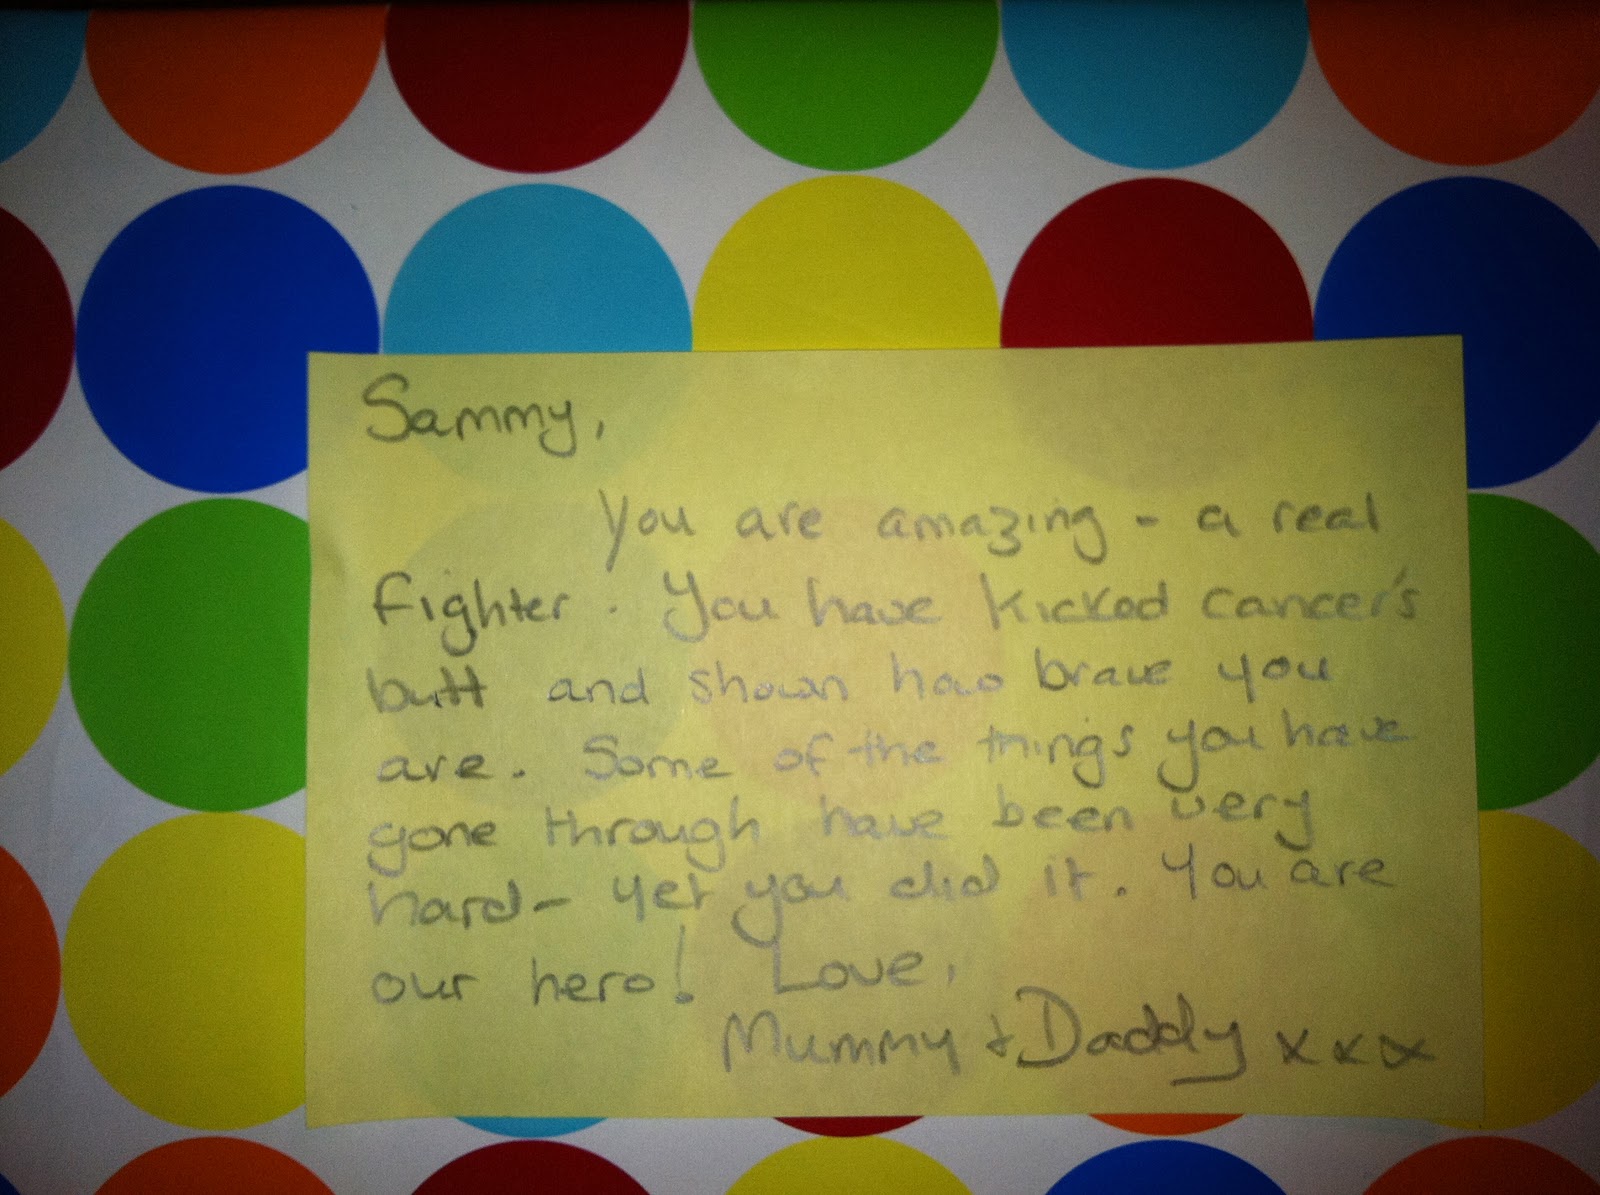 Sammy,
You are amazing - a real
fighter. You have kicked cancer's
butt and shown how brave you
are. Some of the things you have
gone through have been very
hard - yet you did it. You are
our hero! Love,
Mummy + Daddy xxx